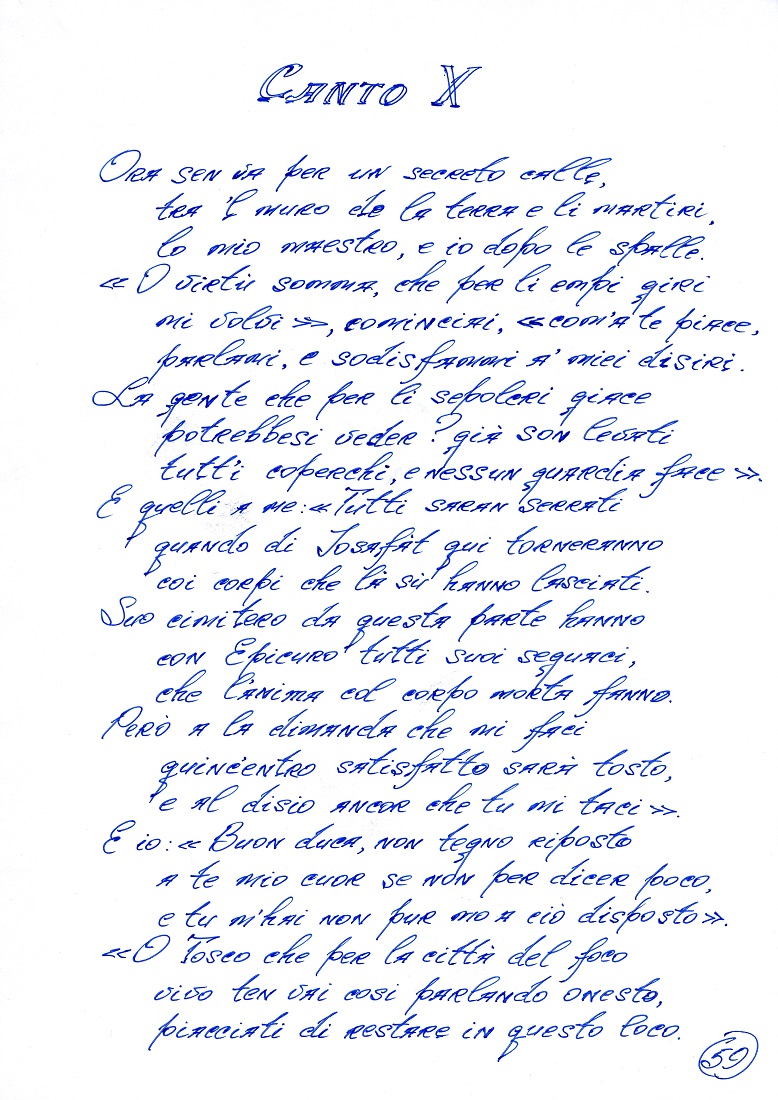 Canto X
Ora sen va per un secreto calle,
tra 'l muro de la terra e li martiri,
lo mio maestro, e io dopo le spalle.
«O virtù somma, che per li empi giri
mi volvi», cominciai, «com'a te piace,
parlami, e sodisfammi a' miei disiri.
La gente che per li sepolcri giace
potrebbesi veder? già son levati
tutt'i coperchi, e nessun guardia face».
E quelli a me: «Tutti saran serrati
quando di Iosafàt qui torneranno
coi corpi che là sù hanno lasciati.
Suo cimitero da questa parte hanno
con Epicuro tutti suoi seguaci,
che l'anima col corpo morta fanno.
Però a la dimanda che mi faci
quinc'entro satisfatto sarà tosto,
e al disio ancor che tu mi taci».
E io: «Buon duca, non tegno riposto
a te mio cuor se non per dicer poco,
e tu m'hai non pur mo a ciò disposto».
«O Tosco che per la città del foco
vivo ten vai così parlando onesto,
piacciati di restare in questo loco.
59